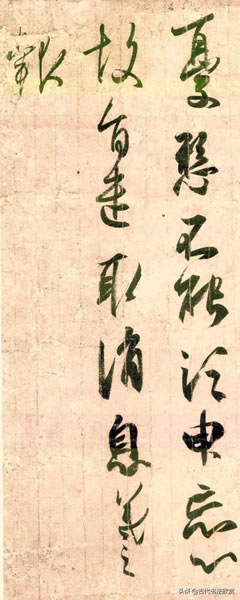 憂懸不能須臾忘心
故旨遣取消息羲之
報
头条 @古代书法欣赏